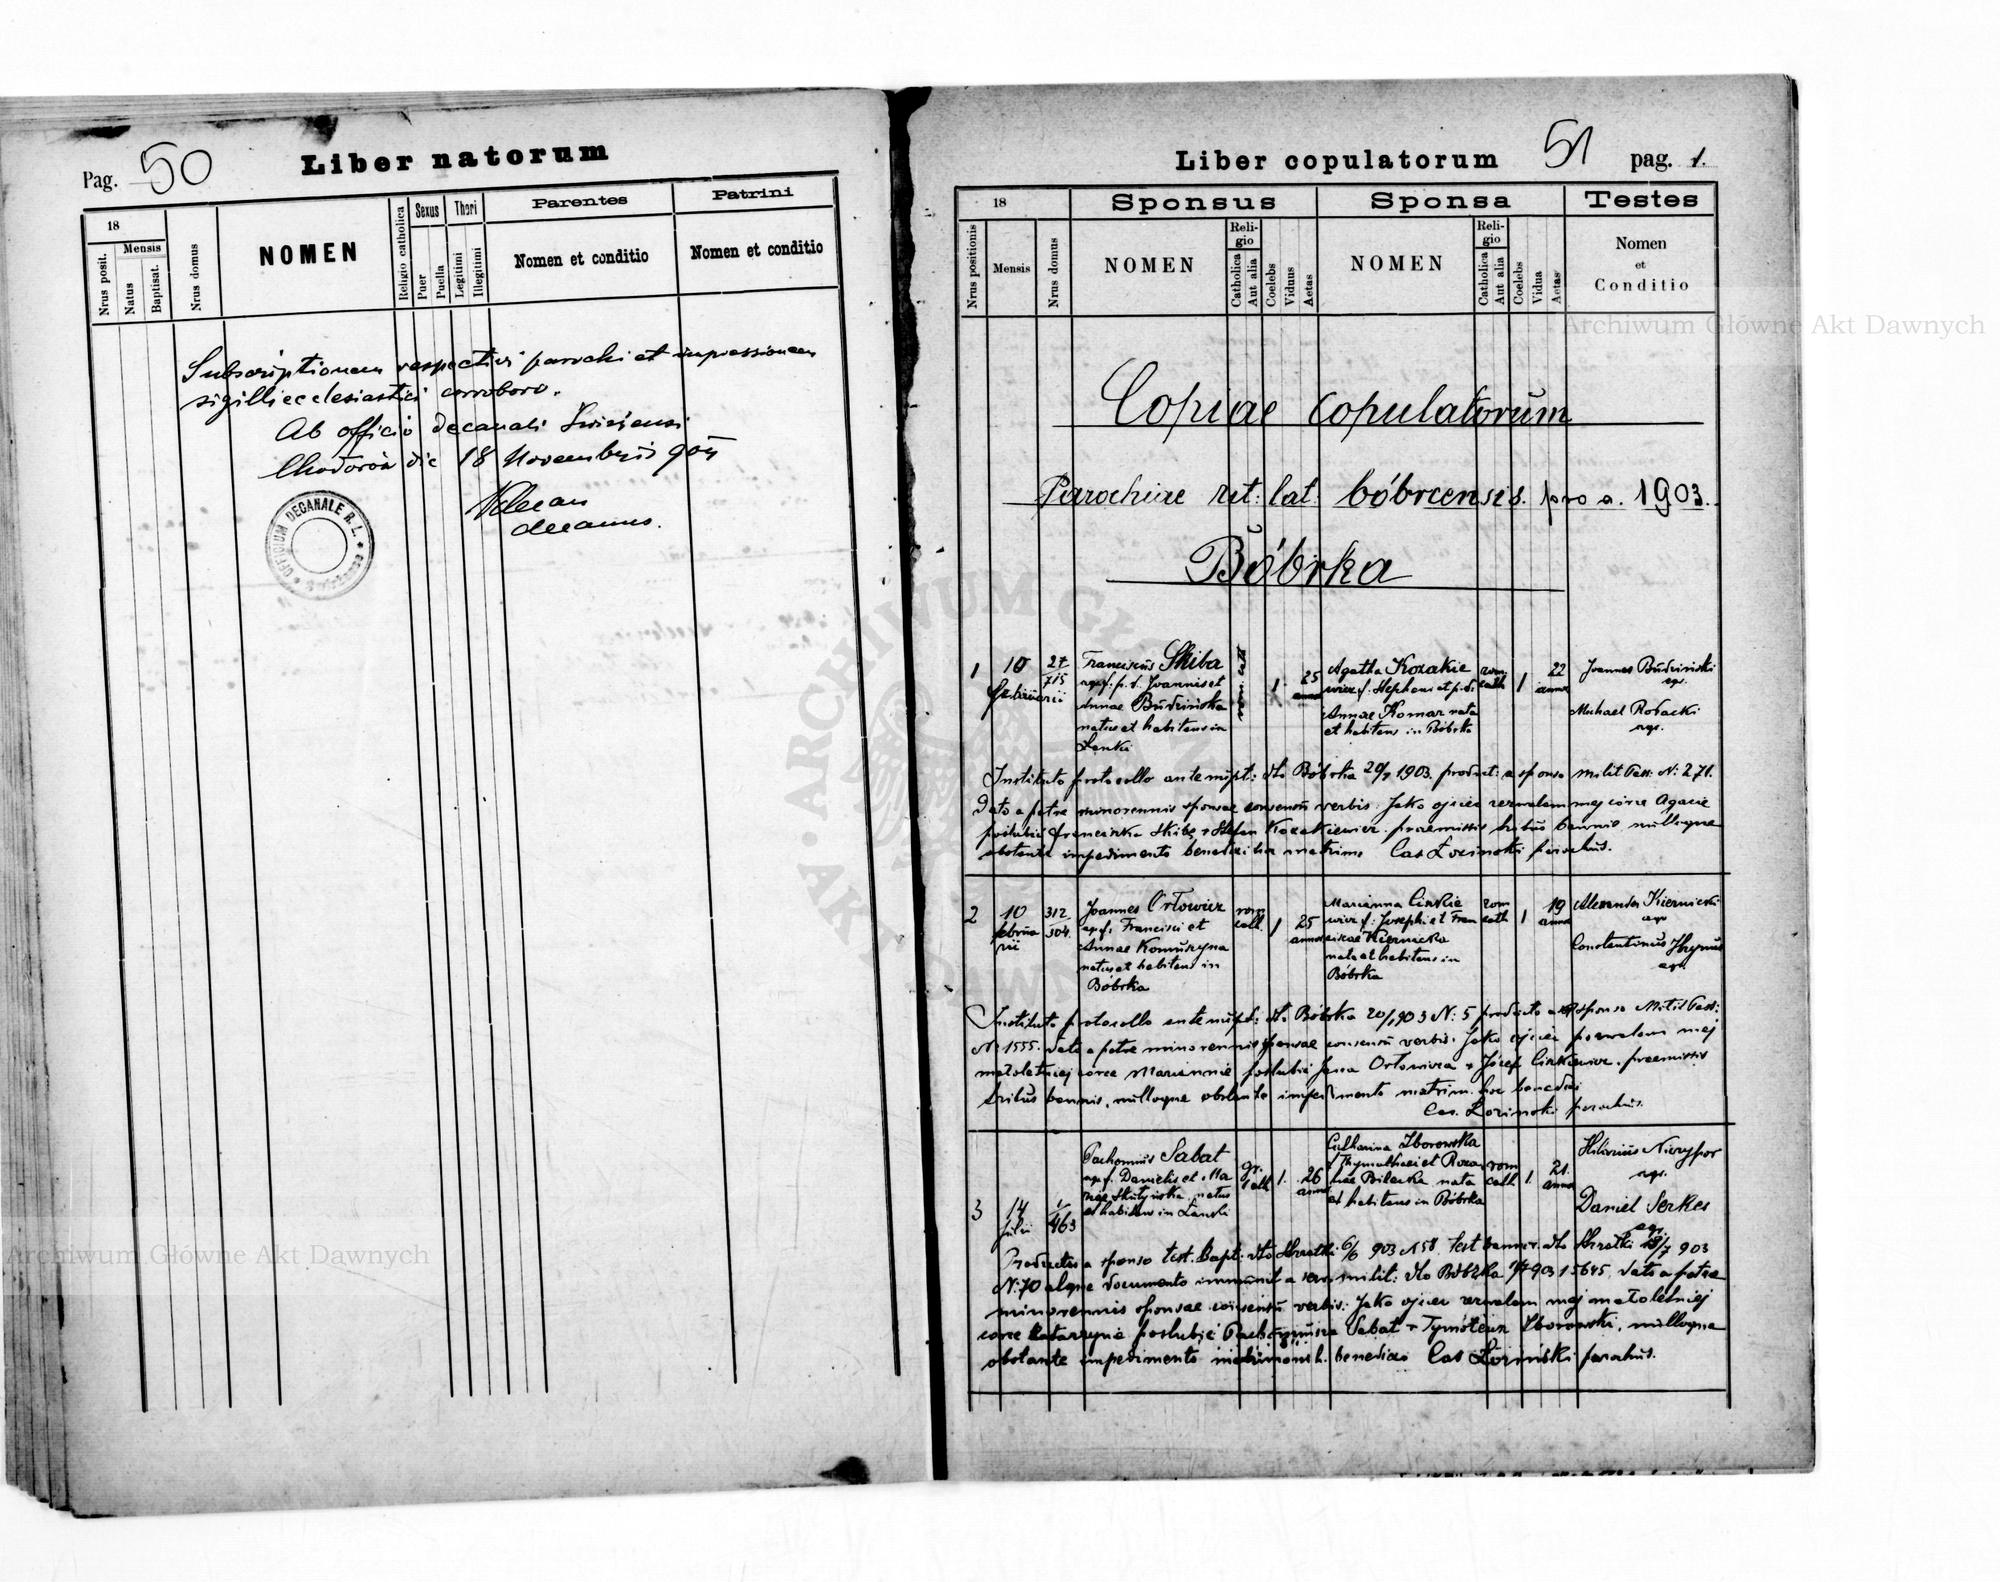 Pag. 50
Liber natorum
18
Nrus posit.
Mensis
Natus
Baptisat.
Nrus domus
NOMEN
Religio catholica
Sexus
Puer
Puella
Thori
Legitimi
Illegitimi
Parentes
Nomen et conditio
Patrini
Nomen et conditio
Subscriptionem respectivi parochi et impressionem
sigilli ecclesiastici corroboro.
Ab officio decanali
die 18 Novembris
decanus.
OFFICIUM DECANALE R. L.
Liber copulatorum 51 pag. 1.
18
Nrus positionis
Mensis
Nrus domus
Sponsus
NOMEN
Religio
Catholica
Aut alia
Coelebs
Viduus
Aetas
Sponsa
NOMEN
Religio
Catholica
Aut alia
Coelebs
Vidua
Aetas
Testes
Nomen
et
Conditio
Copiae copulatorum
Parochiae rit: lat: bóbrcensis. pro a. 1903.
Bóbrka
1
10
Februarii
27
715
Franciscus Skiba
agr. f. p. d. Joannis et
Annae Budzińska
natus et habitans in
Łanki
rom. cath
1
25
annor
Agatha Kozakie
wicz f. Stephani et p. d.
Annae Komar nata
et habitans in Bóbrka
rom
cath
1
22
annor
Joannes Budziński
agr.
Michael Robacki
agr.
Instituto protocollo antenupt: dto Bóbrka 1903. product: a sponso milit Pass: N: 271.
Dato a patre minorennis sponsae consensu verbis: Jako ojciec zezwalam mej córce Agacie
poślubić Franciszka Skibę + Stefan Kozakiewicz. praemissis tribus bannis nulloque
obstante impedimento benedixi hoc matrim. Cas Łoziński parochus.
2
10
februa
rii
312
304.
Joannes Orłowicz
agr. f. Francisci et
Annae
natus et habitans in
Bóbrka
rom
cath.
1
25
annor
Marianna Ciskie
wicz f. Josephi et Fran
ciscae Kiernicka
nata et habitans in
Bóbrka
rom
cath
1
19
annor
Alexander Kiernicki
agr
Constantinus
agr.
Instituto protocollo antenupt: dto Bóbrka 903 N: 5 producto a sponso Milit Pass:
N: 1555. dato a patre minorennis sponsae consensu verbis: Jako ojciec pozwalam mej
małoletniej córce Mariannie poślubić Jana Orłowicza + Józef Ciskiewicz. praemissis
tribus bannis, nulloque obstante impedimento matrim. hoc benedixi
Cas. Łoziński parochus.
3
14
1/
463
Pachomius Sabat
agr f. Danielis et Ma
riae natus
et habitans in Łanki
gr.
cath
1.
26
annor
Catharina Zborowska
f Thymothaei et Roza
liae nata
et habitans in Bóbrka
rom
cath
1.
21.
annor
Hilarius Niczypor
agr.
Daniel Serkes
agr.
Producto a sponso test. Bapt. dto 6/6 903 N 58. Test bannor. dto 903
N: 70 atque documento immunit a serv. milit: dto Bóbrka 903 15645. dato a patre
minorennis sponsae consensu verbis: Jako ojciec zezwalam mej małoletniej
córce Katarzynie poślubić Pachomiusza Sabat + Tymoteusz Zborowski, nulloque
obstante impedimento matrimonium h. benedixi Cas Łoziński parochus.
Archiwum Główne Akt Dawnych
Archiwum Główne Akt Dawnych
ARCHIWUM GŁÓWNE AKT DAWNYCH